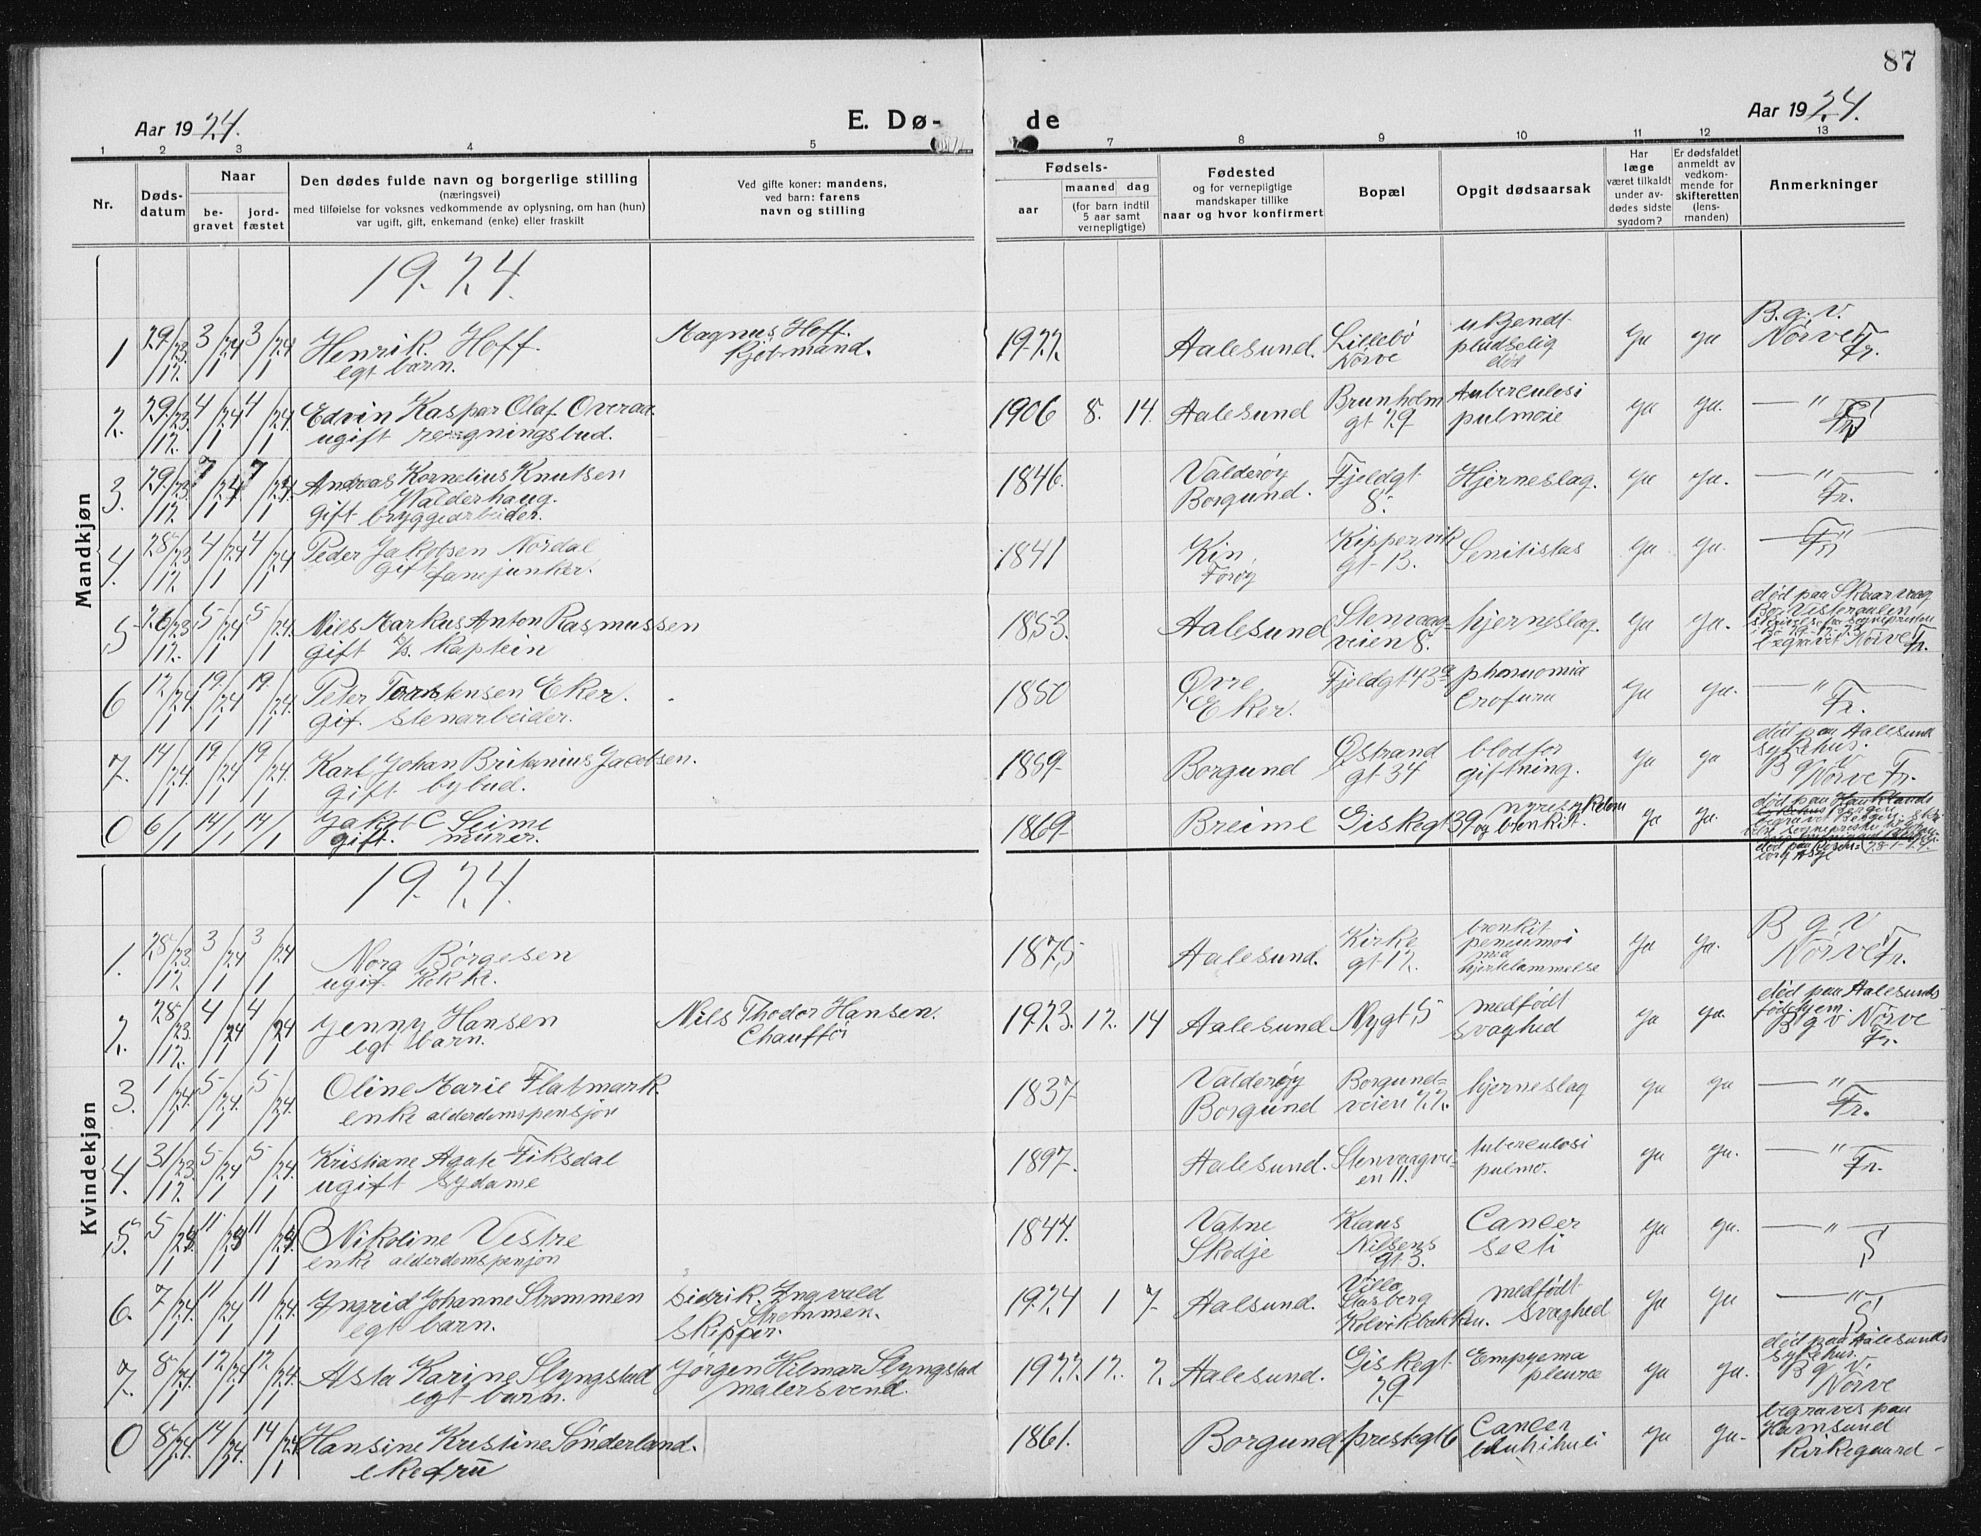 87
Aar 1924.
E. Dø-
de
Aar 1924.
1 2 3 4 5 7 8 9 10 11 12 13
Nr.
Døds-
datum
Naar
be-
gravet
jord-
fæstet
Den dødes fulde navn og borgerlige stilling
(næringsvei)
med tilføielse for voksnes vedkommende av oplysning, om han (hun)
var ugift, gift, enkemand (enke) eller fraskilt
Ved gifte koner: mandens,
ved barn: farens
navn og stilling
Fødsels-
aar
maaned dag
(for barn indtil
5 aar samt
vernepligtige)
Fødested
og for vernepligtige
mandskaper tillike
naar og hvor konfirmert
Bopæl
Opgit dødsaarsak
Har
læge
været tilkaldt
under av-
dødes sidste
sygdom?
Er dødsfaldet
anmeldt av
vedkom-
mende for
skifteretten
(lens-
manden)
Anmerkninger
Mandkjøn
1924.
1 29/12.23 3/1 24 3/1 24 Henrik Hoff.
egt barn.
Magnus Hoff.
kjøbmand.
1922. Aalesund. Lillebø
Nørve
ukjendt
pludselig
død
ja ja B.g.v.
Nørve Fr.
2. 29/12.23 4/1 24 4/1 24. Edvin Kaspar Olaf Overaa
ugift regningsbud.
1906 8. 14. Aalesund Brunholm
gt 29
tuberculosi
pulmoie
ja ja. — " —
3. 29/12.23 7/1 24 7/1 24. Andreas Kornelius Knutsen
Valderhaug.
Gift bryggearbeider.
1846. Valderøy
Borgund.
Fjeldgt
8.
Hjerneslag. ja ja. — " —
Fr.
4. 28/12.23 4/1 24 4/1 24 Peder Jakobsen Nordal
gift fanejunker.
1841 Kin
Førøy
Kippervik
gt 13.
Senitistas ja ja. — " —
Fr
5 26/12.23 5/1 24 5/1 24. Nils Markus Anton Rasmussen
gift kaptein
1853. Aalesund Stenvaag-
veien 8.
hjerneslag. ja ja. død paa Skaarvaag
Bø i Vesteraalen
begravet Nørve Fr.
6 12/1 24 19/1 24 19/1 24. Peter Torstensen Eker.
gif. stenarbeider.
1850 Øvre
Eker.
Fjeldgt 43a phenuomia
Crofura
ja ja. — " —
Fr.
7. 14/1 24. 19/1 24 19/1 24. Karl Johan Britanius Jacobsen.
gift. bybud.
1859 Borgund Østrand
gt 34
blodfor
giftning.
ja ja død paa Aalesund
sykehus.
B g v
Nørve Fr.
0 6/1 14/1 14/1 Jakob C Seime
gift. murer.
1869 Breime Giskegt 39 nyresykdom
og brenkit.
ja ja. død paa Hauklands
Kvindekjøn
1924.
1. 28/12.23 3/1 24 3/1 24 Nora Børgesen
ugif. kokke.
1875 Aalesund. Kirke
gt 12.
brenkit
peneumoi
med
hjertelammelse
ja ja. B g v
Nørve Fr.
2. 28/12.23 4/1 24 4/1 24 Jenny Hansen
egt barn.
Nils Thodor Hansen.
Chauffør
1923. 12. 14 Aalesund Nygt 5 medfødt
svaghed
ja ja. død paa Aalesunds
fødehjem.
B g v Nørve
Fr.
3. 1/1 24. 5/1 24. 5/1 24. Oline Marie Flatmark.
enke alderdomspensjon
1837 Valderøy
Borgund
Borgund-
veien 22.
hjerneslag ja ja — " —
Fr.
4. 31/12.23 5/1 24 5/1 24. Kristiane Agate Fiksdal
ugift sydame
1897. Aalesund. Stenvaagvei-
en 11.
tuberculosi
pulmo.
ja ja. — " —
Fr.
5. 5/1 11/1 11/1 Nikoline Vestre
enke alderdomspensjon
1844. Vatne
Skodje
Klaus
Nilsens
gt 3.
Cancer
secti
ja ja. — " —
S
6. 7/1 24. 11/1 24 11/1 24. Ingrid Johanne Strømmen
egt barn.
Sidrik. Ingvald
Strømmen.
Skipper.
1924 1 7 Aalsund. Villa
Starberg
Kolvikbakken.
medfødt
svaghed
ja ja — " —
S
7. 8/1 24. 12/1 24 12/1 24. Asta Karine Slyngstad
egt barn.
Jørgen Hilmar Slyngstad
malersvend.
1922 12. 2. Aalesund. Giskegt
29
Empyema
pleuræ
ja ja. død paa Aalesunds
sykehus.
B g v.
Nørve
0 8/1 24. 14/1 24. 14/1 24 Hansine Kristine Sønderland.
ekefrü
1861. Borgund preskgt 6 Cancer
ja ja. begraves paa
Hamsund
kirkegaard